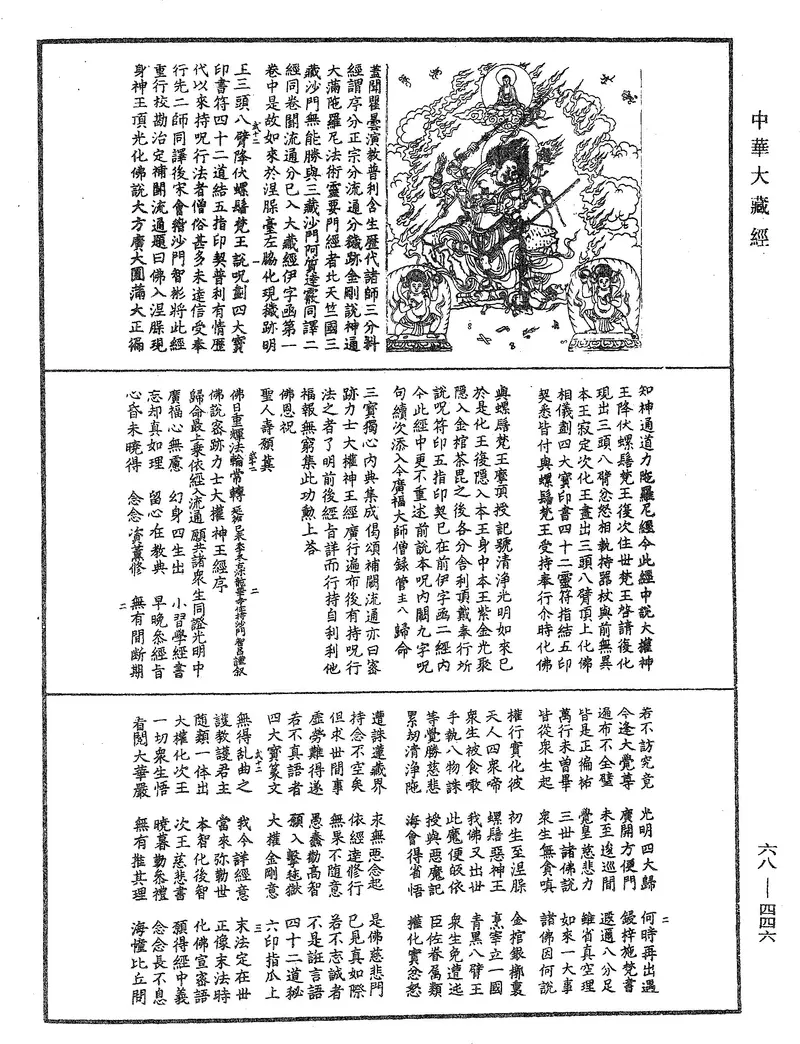 中華大藏經
六八—四四六
蓋聞瞿曇演教普利含生歷代諸師三分科
經謂序分正宗分流通分穢跡金剛說神通
大滿陀羅尼法術靈要門經者北天竺國三
藏沙門無能勝與三藏沙門阿質達霰同譯二
經同卷闕流通分已入大藏經伊字函第一
卷中是故如來於涅槃臺左脇化現穢跡明
王三頭八臂降伏螺髻梵王說呪劃四大寶
印書符四十二道結五指印契普利有情歷
代以來持呪行法者僧俗甚多未達信受奉
行先二師同譯後宋會稽沙門智彬將此經
重行校勘治定補闕流通題曰佛入涅槃現
身神王頂光化佛說大方廣大圓滿大正徧
知神通道力陀羅尼經今此經中說大權神
王降伏螺髻梵王復次住世梵王啓請復化
現出三頭八臂忿怒相執持器杖與前無異
本王寂定次化王畫出三頭八臂頂上化佛
相儀劃四大寶印書四十二靈符指結五印
契悉皆付與螺髻梵王受持奉行尒時化佛
與螺髻梵王摩頂授記號清淨光明如來已
於是化王後隱入本王身中本王紫金光聚
隱入金棺茶毘之後各分舍利頂戴奉行所
說呪符印五指印契已在前伊字函二經內
今此經中更不重述前說本呪內闕九字呪
句續次添入今廣福大師僧録管主八歸命
三寶獨心內典集成偈頌補闕流通亦曰密
跡力士大權神王經廣行遍布後有持呪行
法之者了明前後經旨詳而行持自利利他
福報無窮集此功勳上荅
佛恩祝
聖人壽願冀
佛日重輝法輪常轉
佛說密跡力士大權神王經序
歸命最上乘依經入流通 願共諸衆生同證光明中
廣福心無慮 幻身四生出 小習學經書
忘却真如理 留心在教典 早晚參經旨
心昏未曉得 念念資薰修 無有間断期
若不訪究竟 光明四大歸 何時再出遇
今逢大覺尊 廣開方便門 鑁梓施梵書
遍布不全壁 未至逡巡間 遐邇八分足
皆是正徧祐 覺皇慈悲力 雖省真空理
萬行未曾畢 三世諸佛說 如來一大事
皆從衆生起 衆生無貪嗔 諸佛因何說
權行實化彼 初生至涅槃 金棺銀槨裏
天人四衆啼 螺髻惡神王 烹宰立一國
衆生被食噉 我佛又出世 青黑八臂王
手執八物誅 此魔便皈依 衆生免遭迍
等覺勝慈悲 授與惡魔記 臣佐眷属類
累劫清淨陁 海會得省悟 權化實忿怒
遭誅遵藏界 永無惡念起 是佛慈悲門
持念不空矣 依經達修行 已見真如際
但求世間事 無果不随意 若不志誠者
虛勞難得遂 愚蠢勸高智 不是誑言語
若不真語者 願入擊毬獄 四十二道秘
四大寶篆文 大權金剛意 六印指瓜上
無得乱曲之 我今詳經意 末法定在世
護教護君主 當來弥勒世 正像末法時
随類一体出 本智化後智 化佛宣密語
大權化次王 次王慈悲書 願得經中義
一切衆生悟 曉暮勤參禮 念念長不息
看閱大華嚴 無有推其理 海憧比丘問